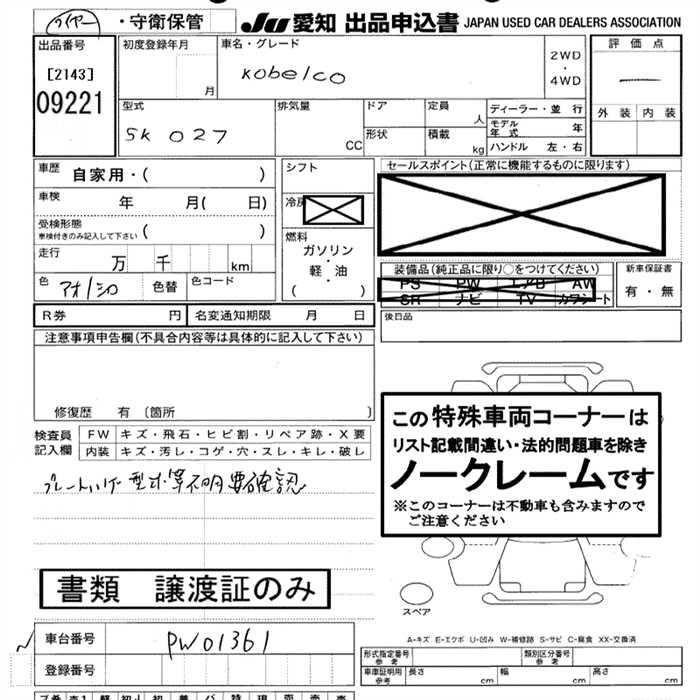 タイヤー ・守衛保管 JU 愛知 出品申込書 JAPAN USED CAR DEALERS ASSOCIATION
出品番号 初度登録年月 車名・グレード 評価点
[2143] 月 Kobelco 2WD・4WD
09221 外装 内装
型式 排気量 ドア 定員 人 ディーラー・並 行
SK 027 CC 形状 積載 kg モデル年式 年
ハンドル 左・右
車歴 自家用・( ) シフト セールスポイント(正常に機能するものに限ります)
車検 年 月( 日) 冷房
受検形態 車検付きのみ記入して下さい ( ) 燃料
走行 万 千 km ガソリン・軽・油 ( )
装備品(純正品に限り○をつけてください) 新車保証書
色 アオ/シロ 色替 色コード
PS PW エアB AW 有・無
SR ナビ TV カワシート
R券 円 名変通知期限 月 日 後日品
注意事項申告欄(不具合内容等は具体的に記入して下さい)
修復歴 有 〔箇所 〕
この特殊車両コーナーは
リスト記載間違い・法的問題車を除き
ノークレームです
※このコーナーは不動車も含みますので
ご注意ください
検査員記入欄 FW キズ・飛石・ヒビ割・リペア跡・X要
内装 キズ・汚レ・コゲ・穴・スレ・キレ・破レ
プレートハゲ 型式等不明要確認
書類 譲渡証のみ
スペア
A-キズ E-エクボ U-凹み W-補修跡 S-サビ C-腐食 XX-交換済
車台番号 PW01361
登録番号
形式指定番号 参考 類別区分番号 参考
車庫証明用 参考 長さ cm 幅 cm 高さ cm